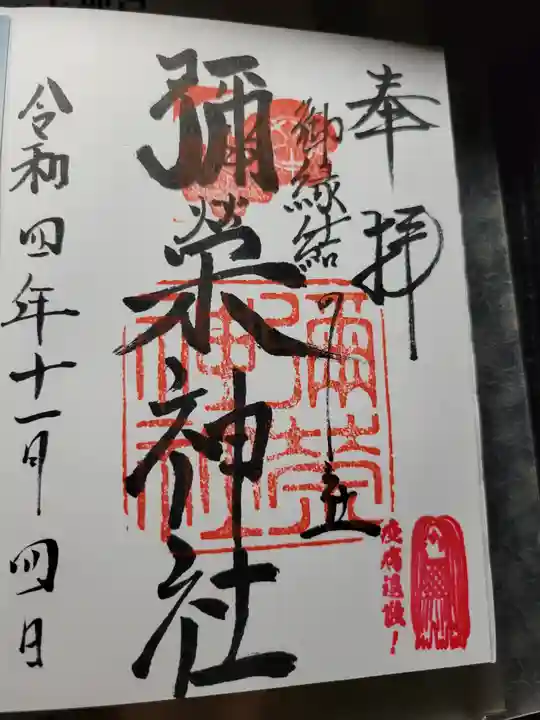 奉拝
御縁結びの社
彌榮神社
彌榮
神社
令和四年十一月四日
疫病退散!